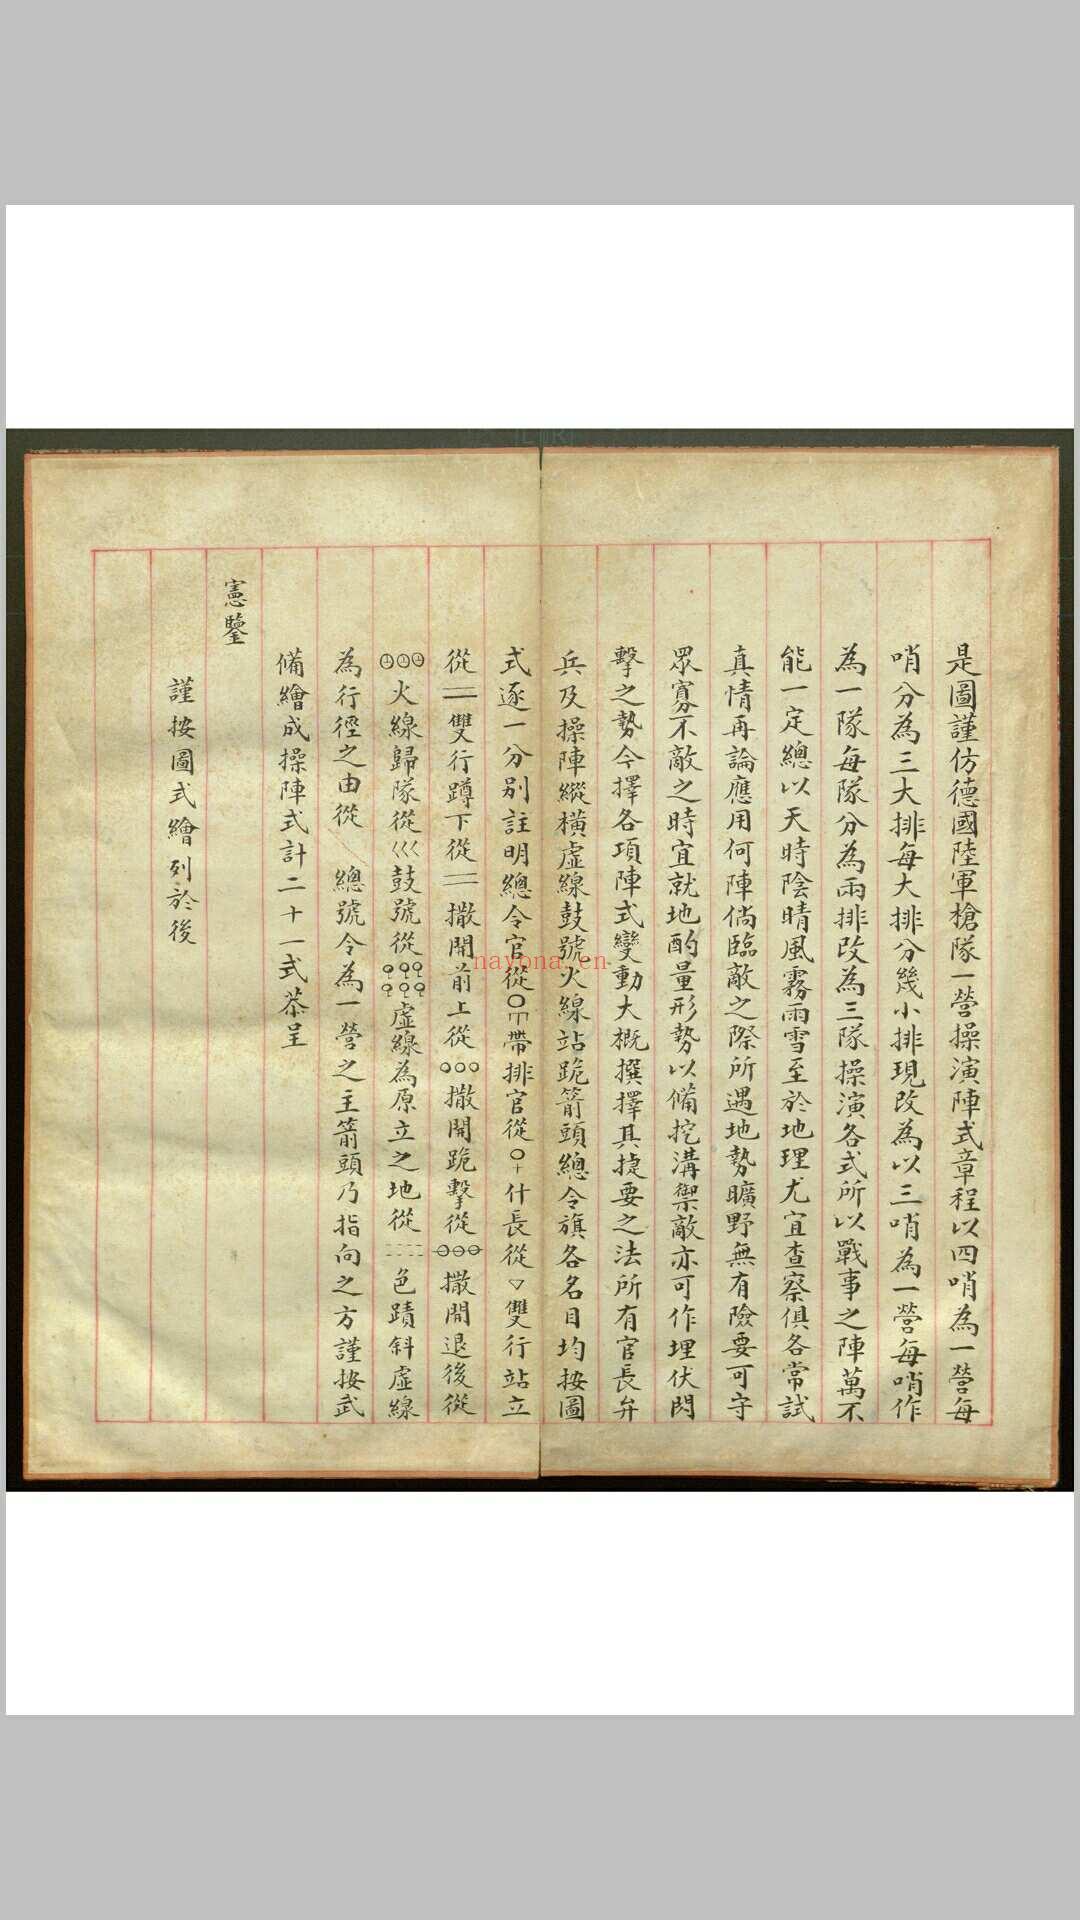 是圖謹仿德國陸軍槍隊一營操演陣式章程以四哨為一營每
哨分為三大排每大排分幾小排現改為以三哨為一營每哨作
為一隊每隊分為兩排改為三隊操演各式所以戰事之陣萬不
能一定總以天時陰晴風霧雨雪至於地理尤宜查察俱各常試
真情再論應用何陣倘臨敵之際所遇地勢曠野無有險要可守
眾寡不敵之時宜就地酌量形勢以備挖溝禦敵亦可作埋伏閃
擊之勢今擇各項陣式變動大概撰擇其捷要之法所有官長弁
兵及操陣縱橫虛線鼓號火線站跪箭頭總令旗各名目均按圖
式逐一分別註明總令官從帶排官從什長從▽雙行站立
從二雙行蹲下從二撒開前上從○○○撒開跪擊從撒開退後從
火線歸隊從〈〈〈鼓號從虛線為原立之地從色蹟斜虛線
為行徑之由從 總號令為一營之主箭頭乃指向之方謹按武
備繪成操陣式計二十一式恭呈
憲鑒
謹按圖式繪列於後
nayona.cn